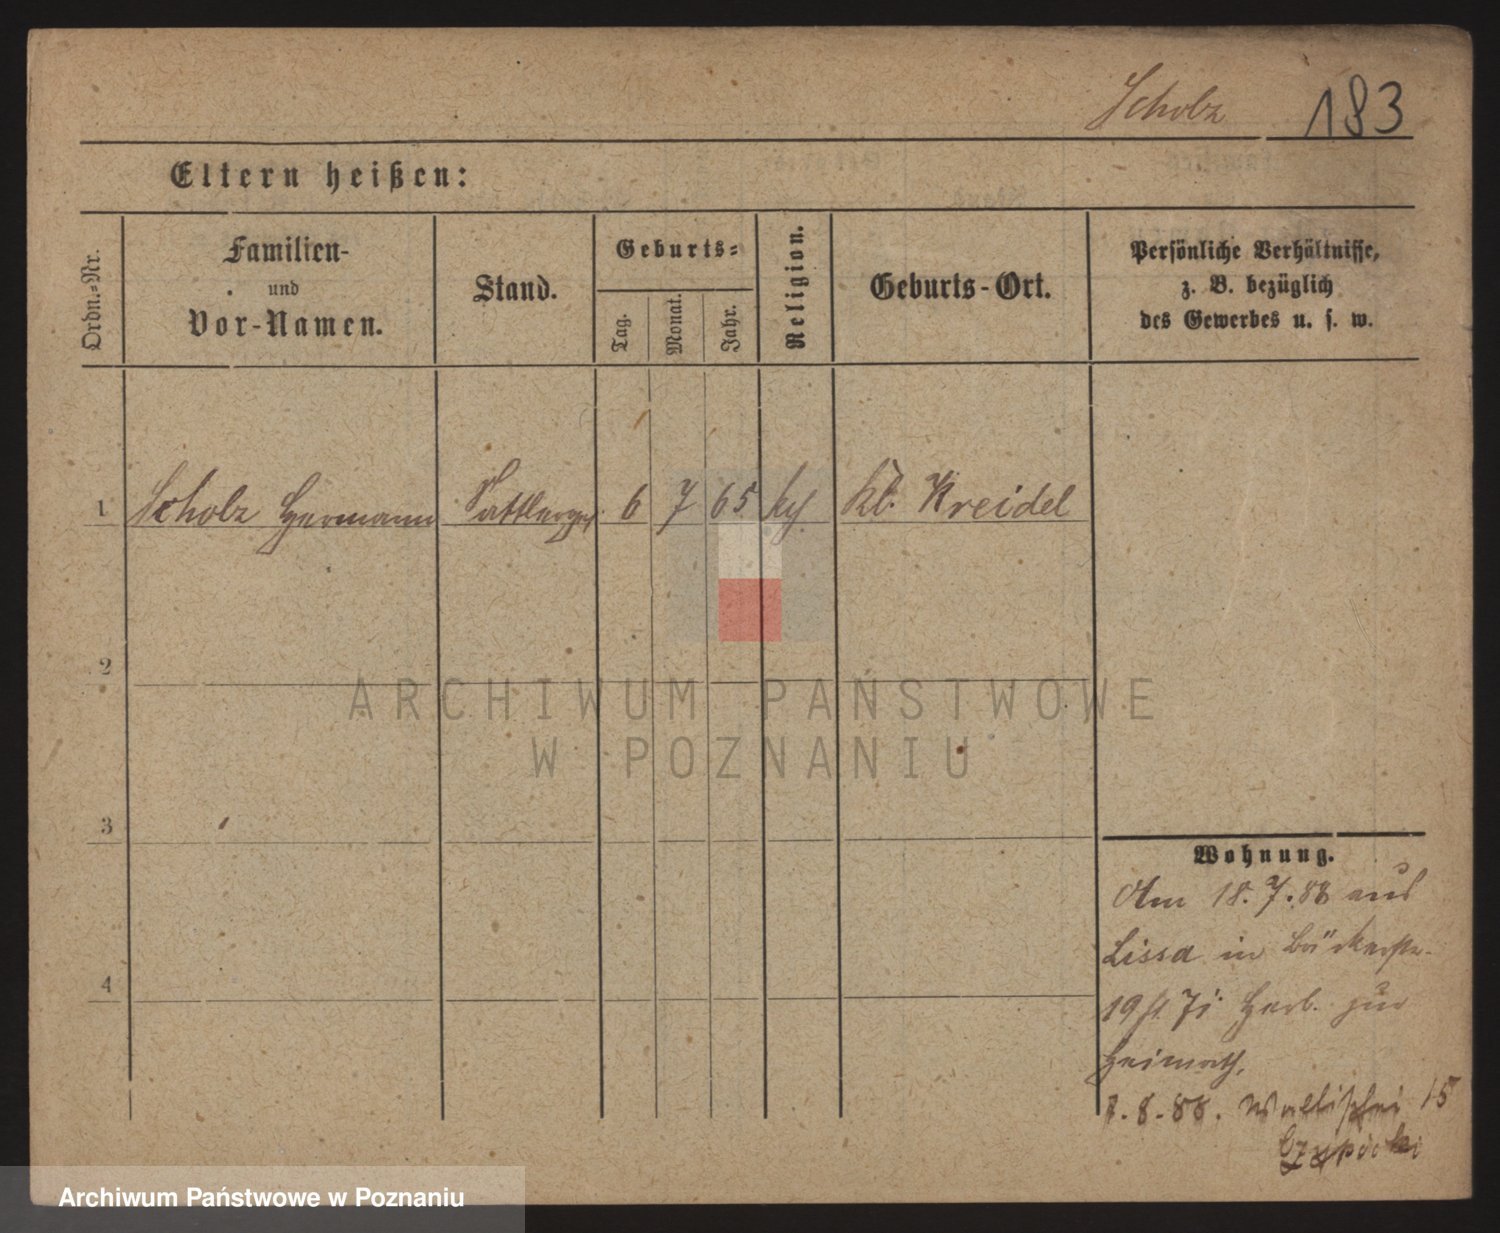 Scholz 183
Eltern heißen:
Ordn.-Nr.
Familien-
und
Vor-Namen.
Stand.
Geburts-
Tag.
Monat.
Jahr.
Religion.
Geburts-Ort.
Persönliche Verhältnisse,
z. B. bezüglich
des Gewerbes u. s. w.
1 Scholz Hermann Sattlerges. 6 7 65 Kl. Kreidel
2
3
4
Wohnung.
Am 18. 7. 88 aus
Lissa in Bäckerstr.
19 Herb. zur
Heimath,
1. 8. 88. Wallischei 15
ARCHIWUM PAŃSTWOWE
W POZNANIU
Archiwum Państwowe w Poznaniu